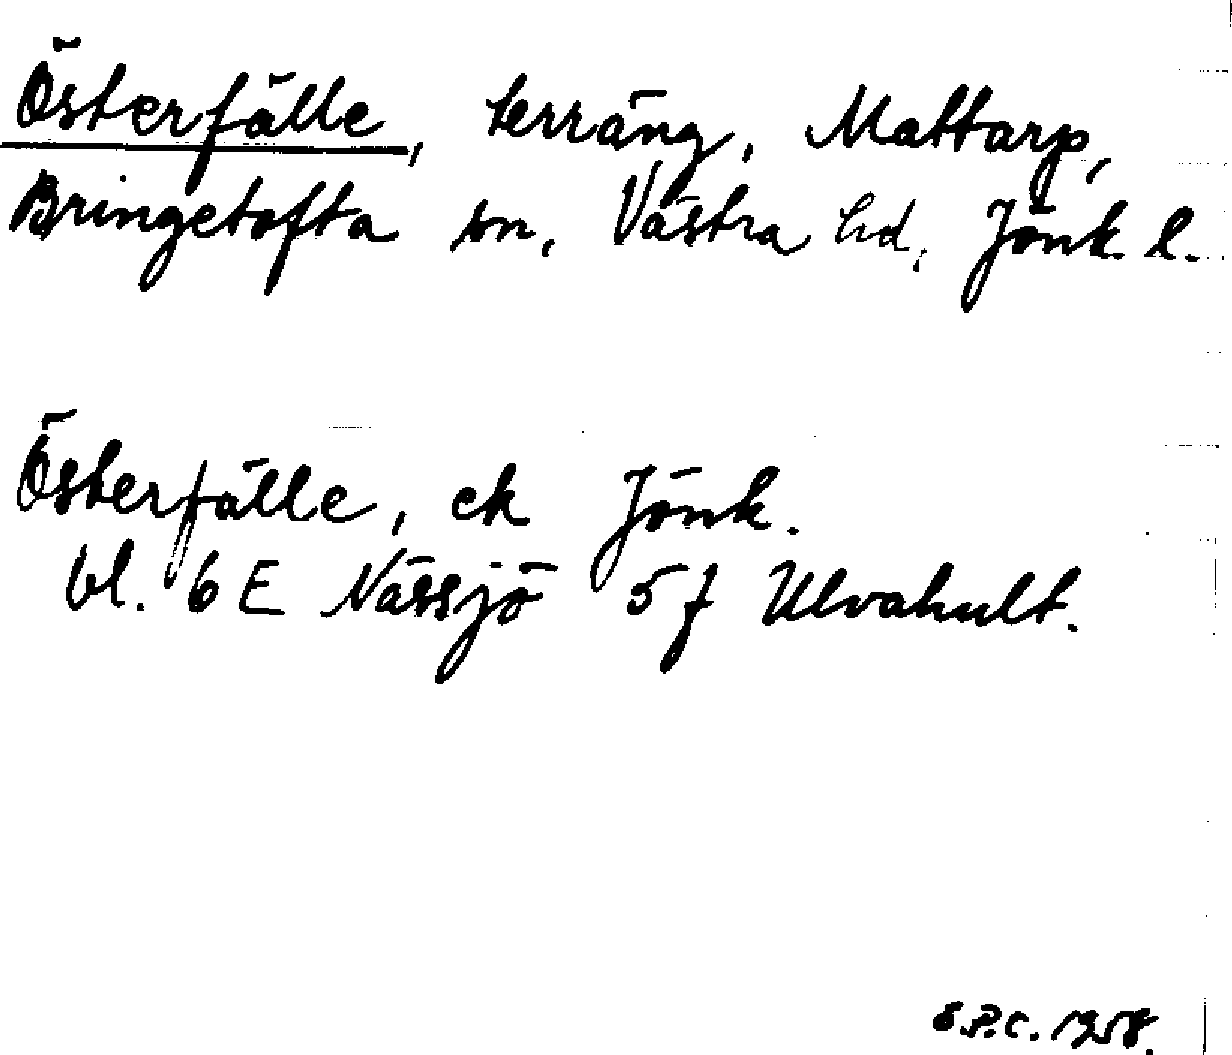 Österfälle, terräng, Mattarp,
Bringetofta sn, Västra hd, Jönk. l.
Österfälle, ek Jönk.
bl. 6 E Nässjö 5 f Ulvahult.
S.P.C. 1958.